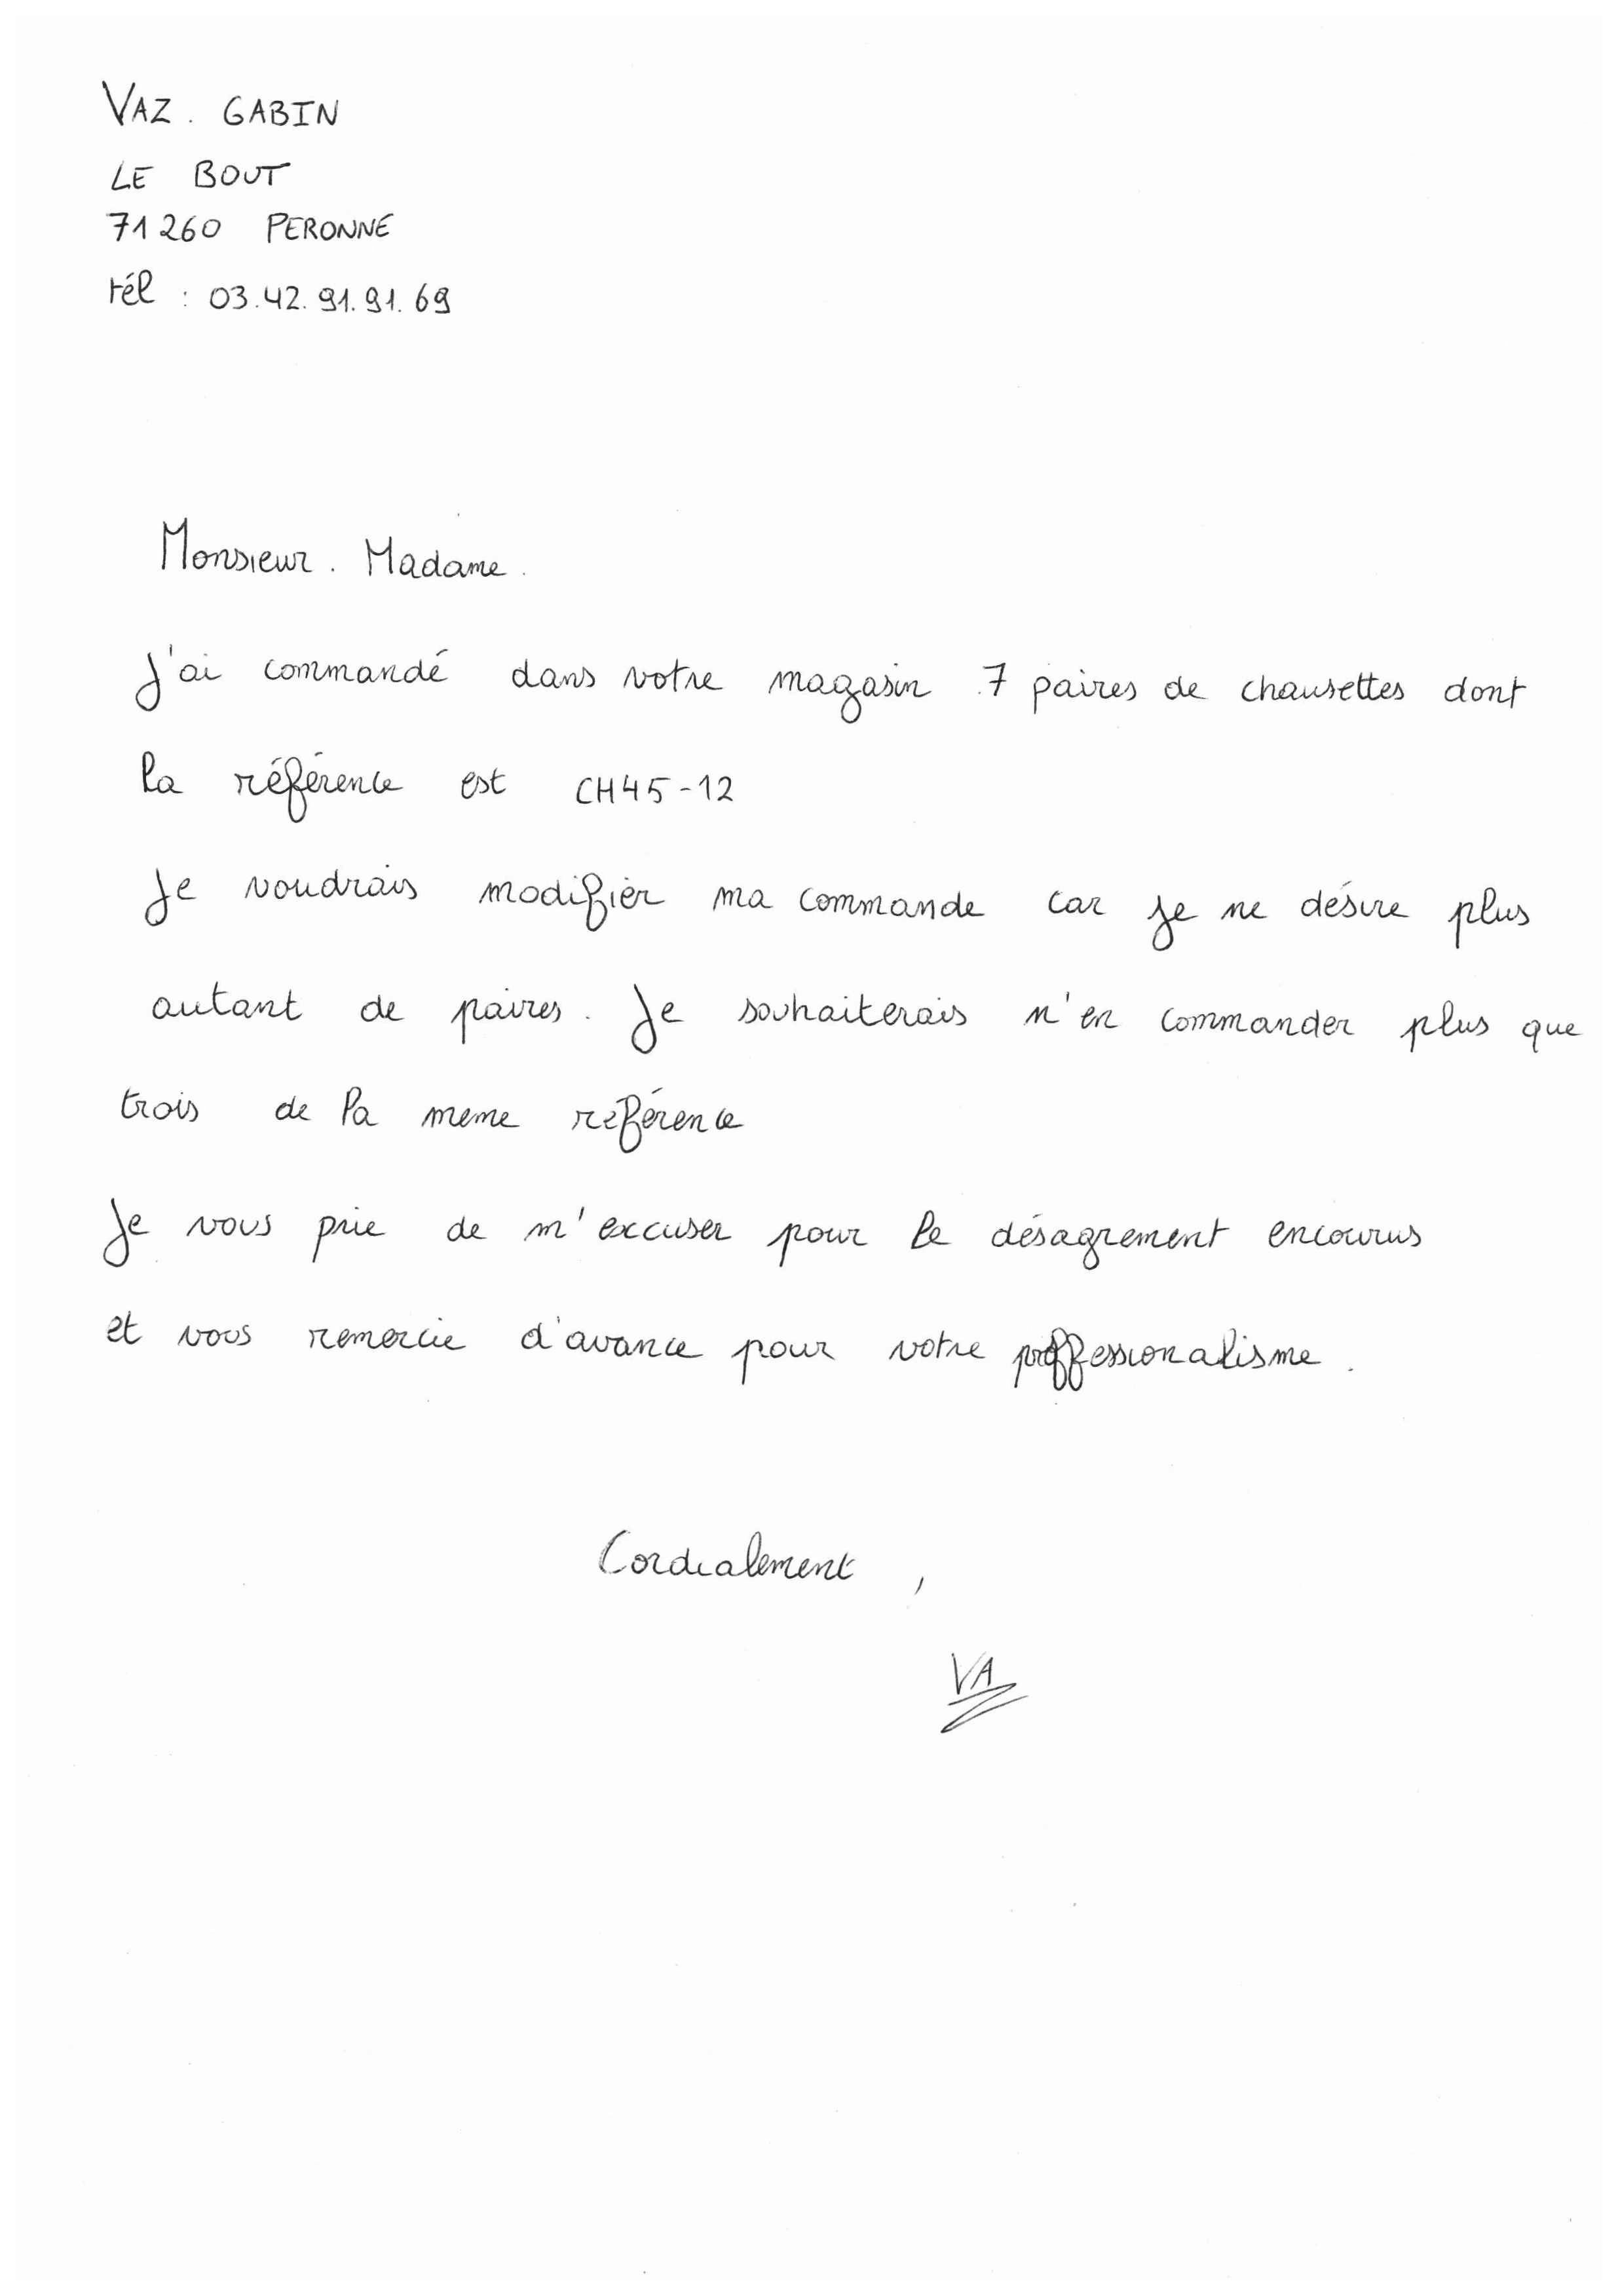 VAZ. GABIN
LE BOUT
71260 PERONNE
tél : 03.42.91.91.69
Monsieur. Madame.
J'ai commandé dans votre magasin 7 paires de chausettes dont
la référence est CH45-12
Je voudrais modifier ma commande car je ne désire plus
autant de paires. Je souhaiterais n'en commander plus que
trois de la meme référence
Je vous prie de m'excuser pour le désagrement encourus
et vous remercie d'avance pour votre proffessionalisme.
Cordialement,
VA